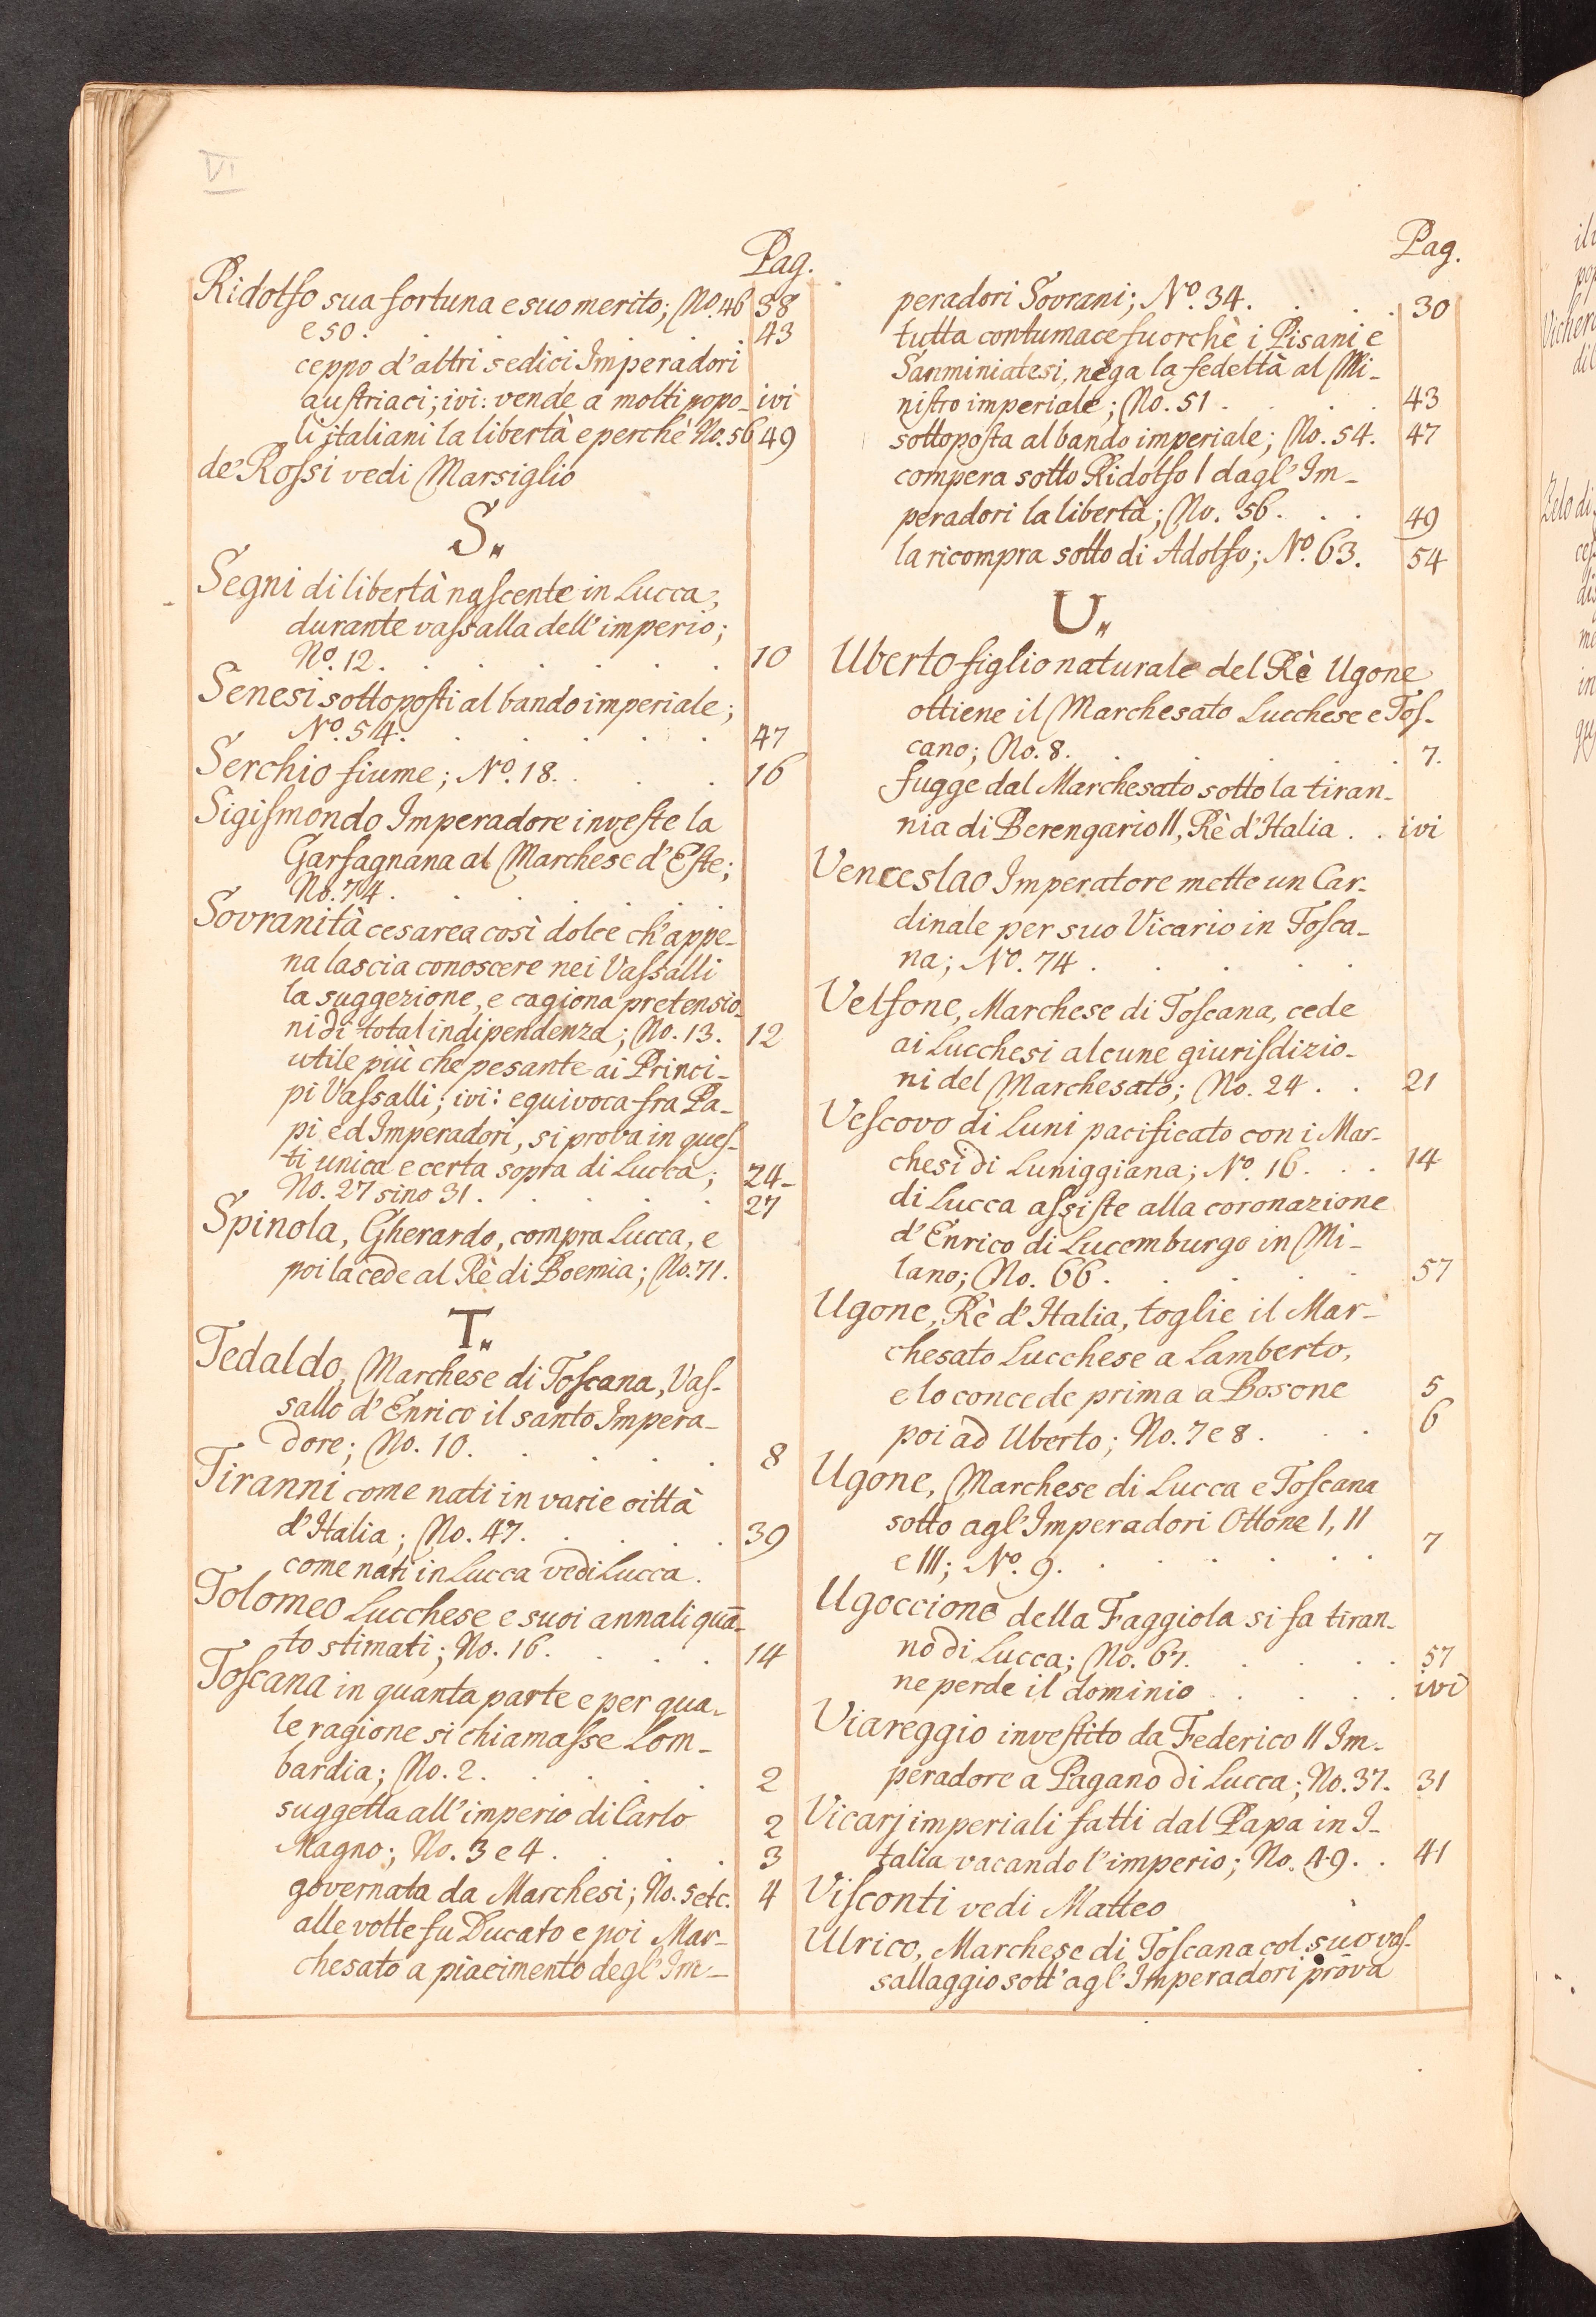 VI
Pag.
Ridolfo sua fortuna e suo merito; No. 46 38
e 50. . . . . . . . 43
ceppo d'altri sedici Imperadori
austriaci; ivi: vende a molti popo- ivi
li italiani la libertà e perchè No. 56 49
de' Rossi vedi Marsiglio
S.
Segni di libertà nascente in Lucca,
durante vassalla dell'imperio;
No. 12. . . . . . . 10
Senesi sottoposti al bando imperiale;
No. 54. . . . . . . 47
Serchio fiume; No. 18. . . . 16
Sigismondo Imperadore investe la
Garfagnana al Marchese d'Este;
No. 74. . . . . . .
Sovranità cesarea così dolce ch'appe-
na lascia conoscere nei Vassalli
la suggezione, e cagiona pretensio-
ni di total indipendenza; No. 13. 12
utile più che pesante ai Princi-
pi Vassalli; ivi: equivoca fra Pa-
pi ed Imperadori, si prova in ques-
ti unica e certa sopra di Lucca; 24-
No. 27 sino 31. . . . . 27
Spinola, Gherardo, compra Lucca, e
poi la cede al Rè di Boemia; No. 71.
T.
Tedaldo, Marchese di Toscana, Vas-
sallo d'Enrico il santo Impera-
dore; No. 10. . . . . 8
Tiranni come nati in varie città
d'Italia; No. 47. . . . . 39
come nati in Lucca vedi Lucca.
Tolomeo Lucchese e suoi annali quā-
to stimati; No. 16. . . . . 14
Toscana in quanta parte e per qua-
le ragione si chiamasse Lom-
bardia; No. 2. . . . . 2
suggetta all'imperio di Carlo 2
Magno; No. 3 e 4. . . . . 3
governata da Marchesi; No. 5 etc. 4
alle volte fu Ducato e poi Mar-
chesato a piacimento degl' Im-
Pag.
peradori Sovrani; No. 34. . . . 30
tutta contumace fuorchè i Pisani e
Sanminiatesi, nega la fedeltà al Mi-
nistro imperiale; No. 51. . . . 43
sottoposta al bando imperiale; No. 54. 47
compera sotto Ridolfo I dagl' Im-
peradori la libertà; No. 56. . . 49
la ricompra sotto di Adolfo; No. 63. 54
U.
Uberto figlio naturale del Rè Ugone
ottiene il Marchesato Lucchese e Tos-
cano; No. 8. . . . . . 7.
fugge dal Marchesato sotto la tiran-
nia di Berengario II, Rè d'Italia . . ivi
Venceslao Imperatore mette un Car-
dinale per suo Vicario in Tosca-
na; No. 74. . . . . .
Velfone, Marchese di Toscana, cede
ai Lucchesi alcune giurisdizio-
ni del Marchesato; No. 24. . . 21
Vescovo di Luni pacificato con i Mar-
chesi di Luniggiana; No. 16. . . 14
di Lucca assiste alla coronazione
d'Enrico di Lucemburgo in Mi-
lano; No. 66. . . . . . 57
Ugone, Rè d'Italia, toglie il Mar-
chesato Lucchese a Lamberto,
e lo concede prima a Bosone 5
poi ad Uberto; No. 7 e 8. . . 6
Ugone, Marchese di Lucca e Toscana
sotto agl'Imperadori Ottone I, II
e III; No. 9. . . . . . 7
Ugoccione della Faggiola si fa tiran-
no di Lucca; No. 67. . . . . 57
ne perde il dominio . . . . . ivi
Viareggio investito da Federico II Im-
peradore a Pagano di Lucca; No. 37. 31
Vicarj imperiali fatti dal Papa in I-
talia vacando l'imperio; No. 49. . 41
Visconti vedi Matteo
Ulrico, Marchese di Toscana col suo vas-
sallaggio sott'agl'Imperadori prova